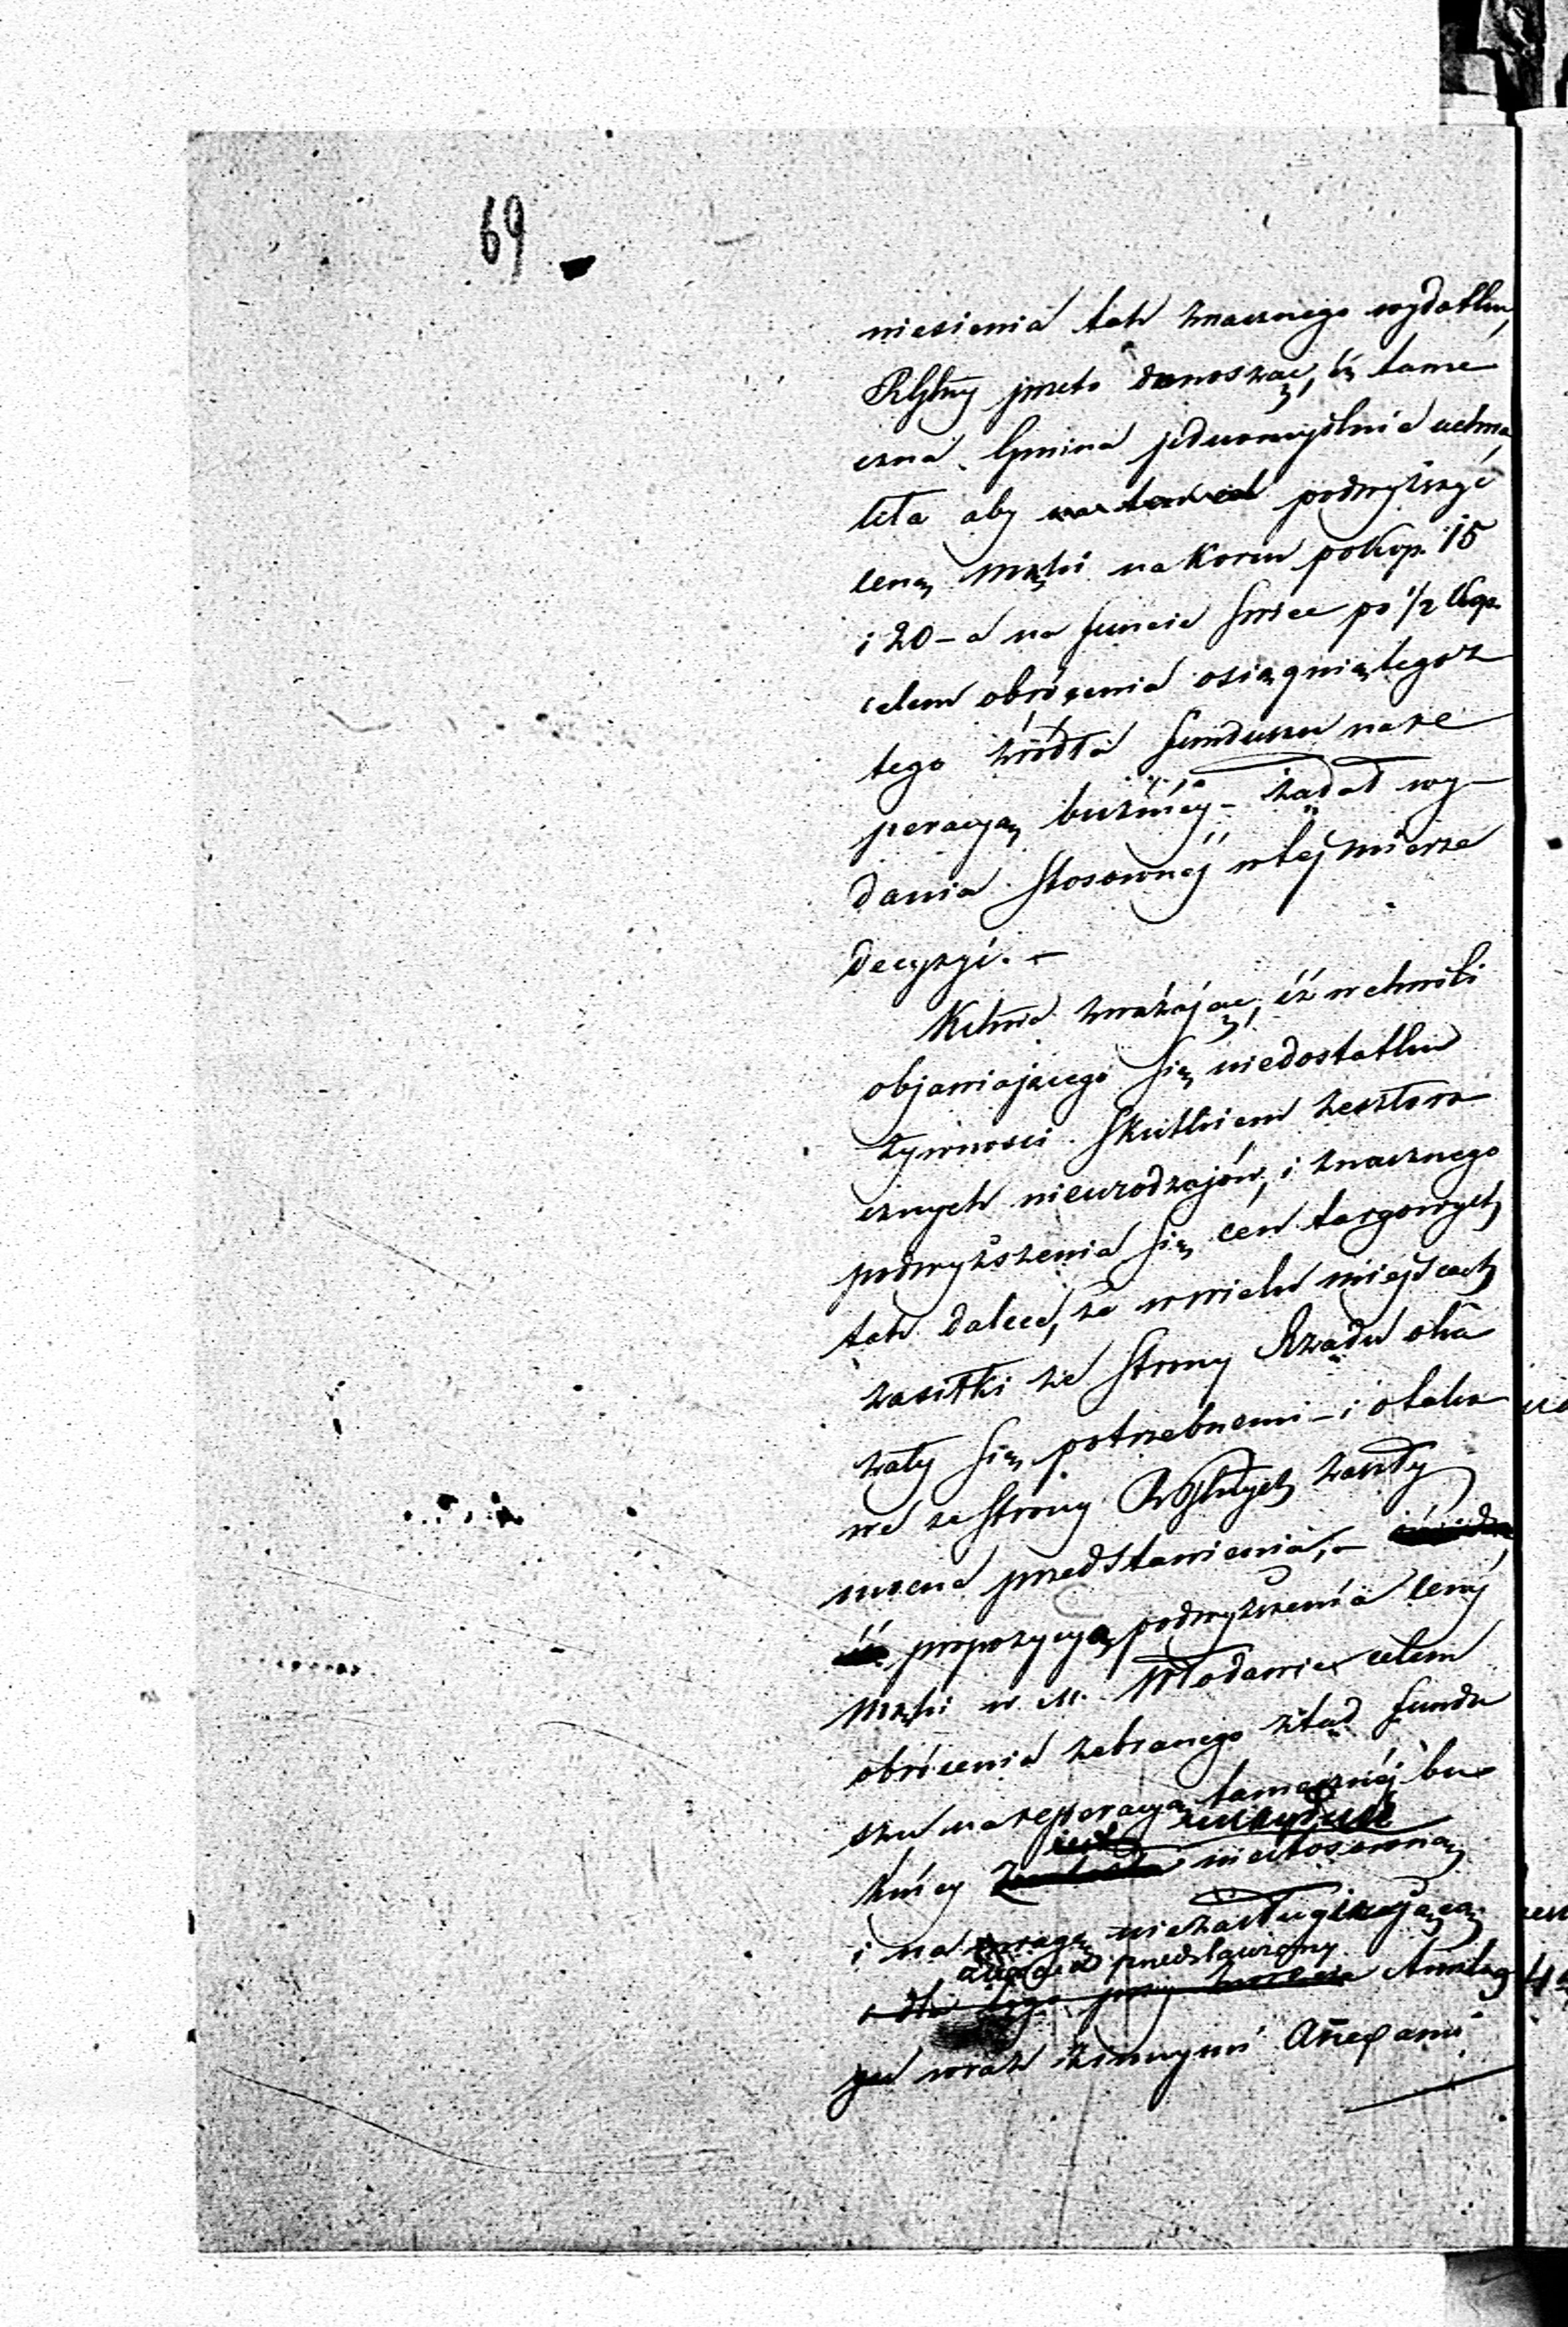 69
niesienia tak znacznego wydatku,
przeto donosząc, iż tame
czna Gmina jednomyślnie uchwa
liła aby podwyższyć
cenę mąki na Korcu po kop. 15
i 20 – a na funcie świec po 1/2 kop.
celem obrócenia osiągniętego z
tego źródła funduszu na re
peracyą bużnicy – żądał wy–
dania stosownéj w téj mierze
decyzyi. –
zważając, iż w chwili
objawiającego się niedostatku
żywności skutkiem zeszłoro
cznych nieurodzajów, i znacznego
podwyższenia się cen targowych
tak dalece, że w wielu miejscach
zasiłki ze strony Rządu oka
zały się potrzebnemi – i o tako
we ze strony zaszły
mocne przedstawienia, –
propozycyą podwyższenia ceny
mąki w M. Włodawie celem
obrócenia zebranego ztąd fundu
szu na reperacyą tamecznéj bu
żnicy jest niestosowną
i na uwagę niezasługującą
przedstawiony
wraz z innymi Anexami